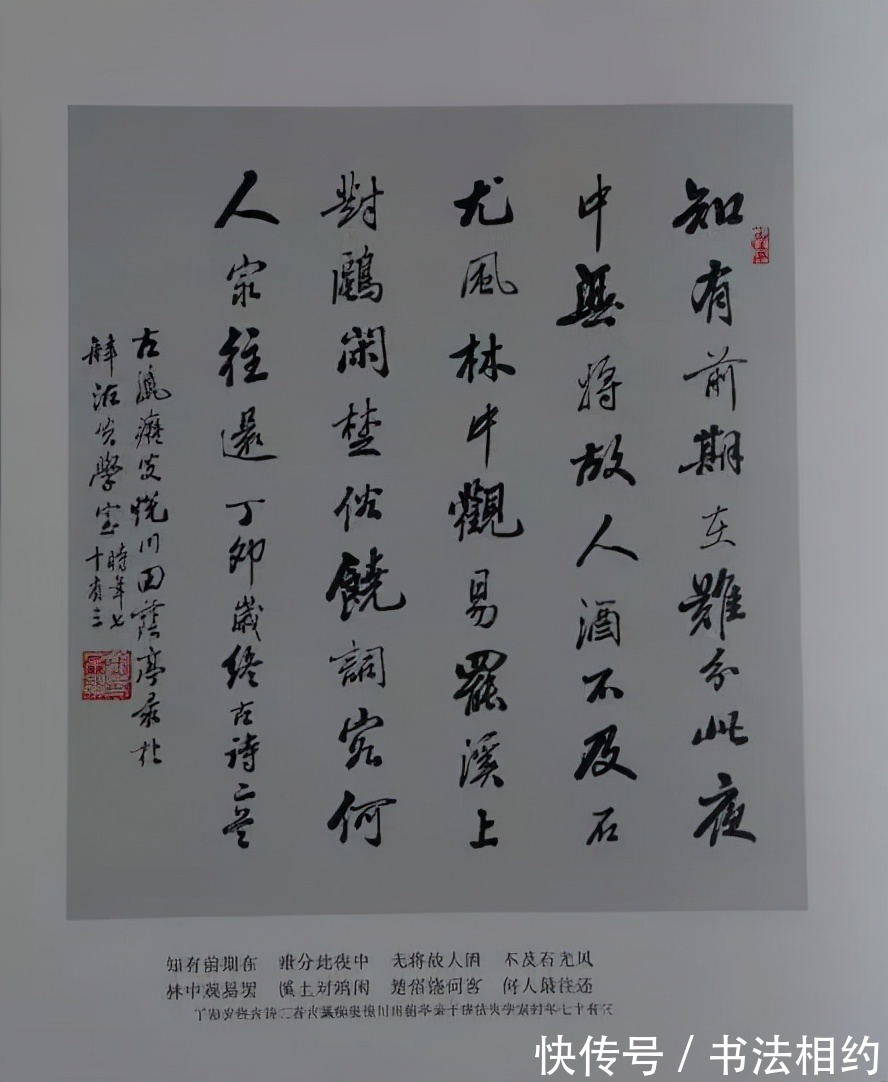 知有前期在難分此夜
中無將故人酒不及石
尤風林中觀易罷溪上
對鷗閑楚俗饒詞客何
人最往還丁卯歲終古詩二首
川田蔭亭录於
學室時年七
十有三
知有前期在 难分此夜中 无将故人酒 不及石尤风
林中观易罢 溪上对鸥闲 楚俗饶词客 何人最往还
快传号 / 书法相约